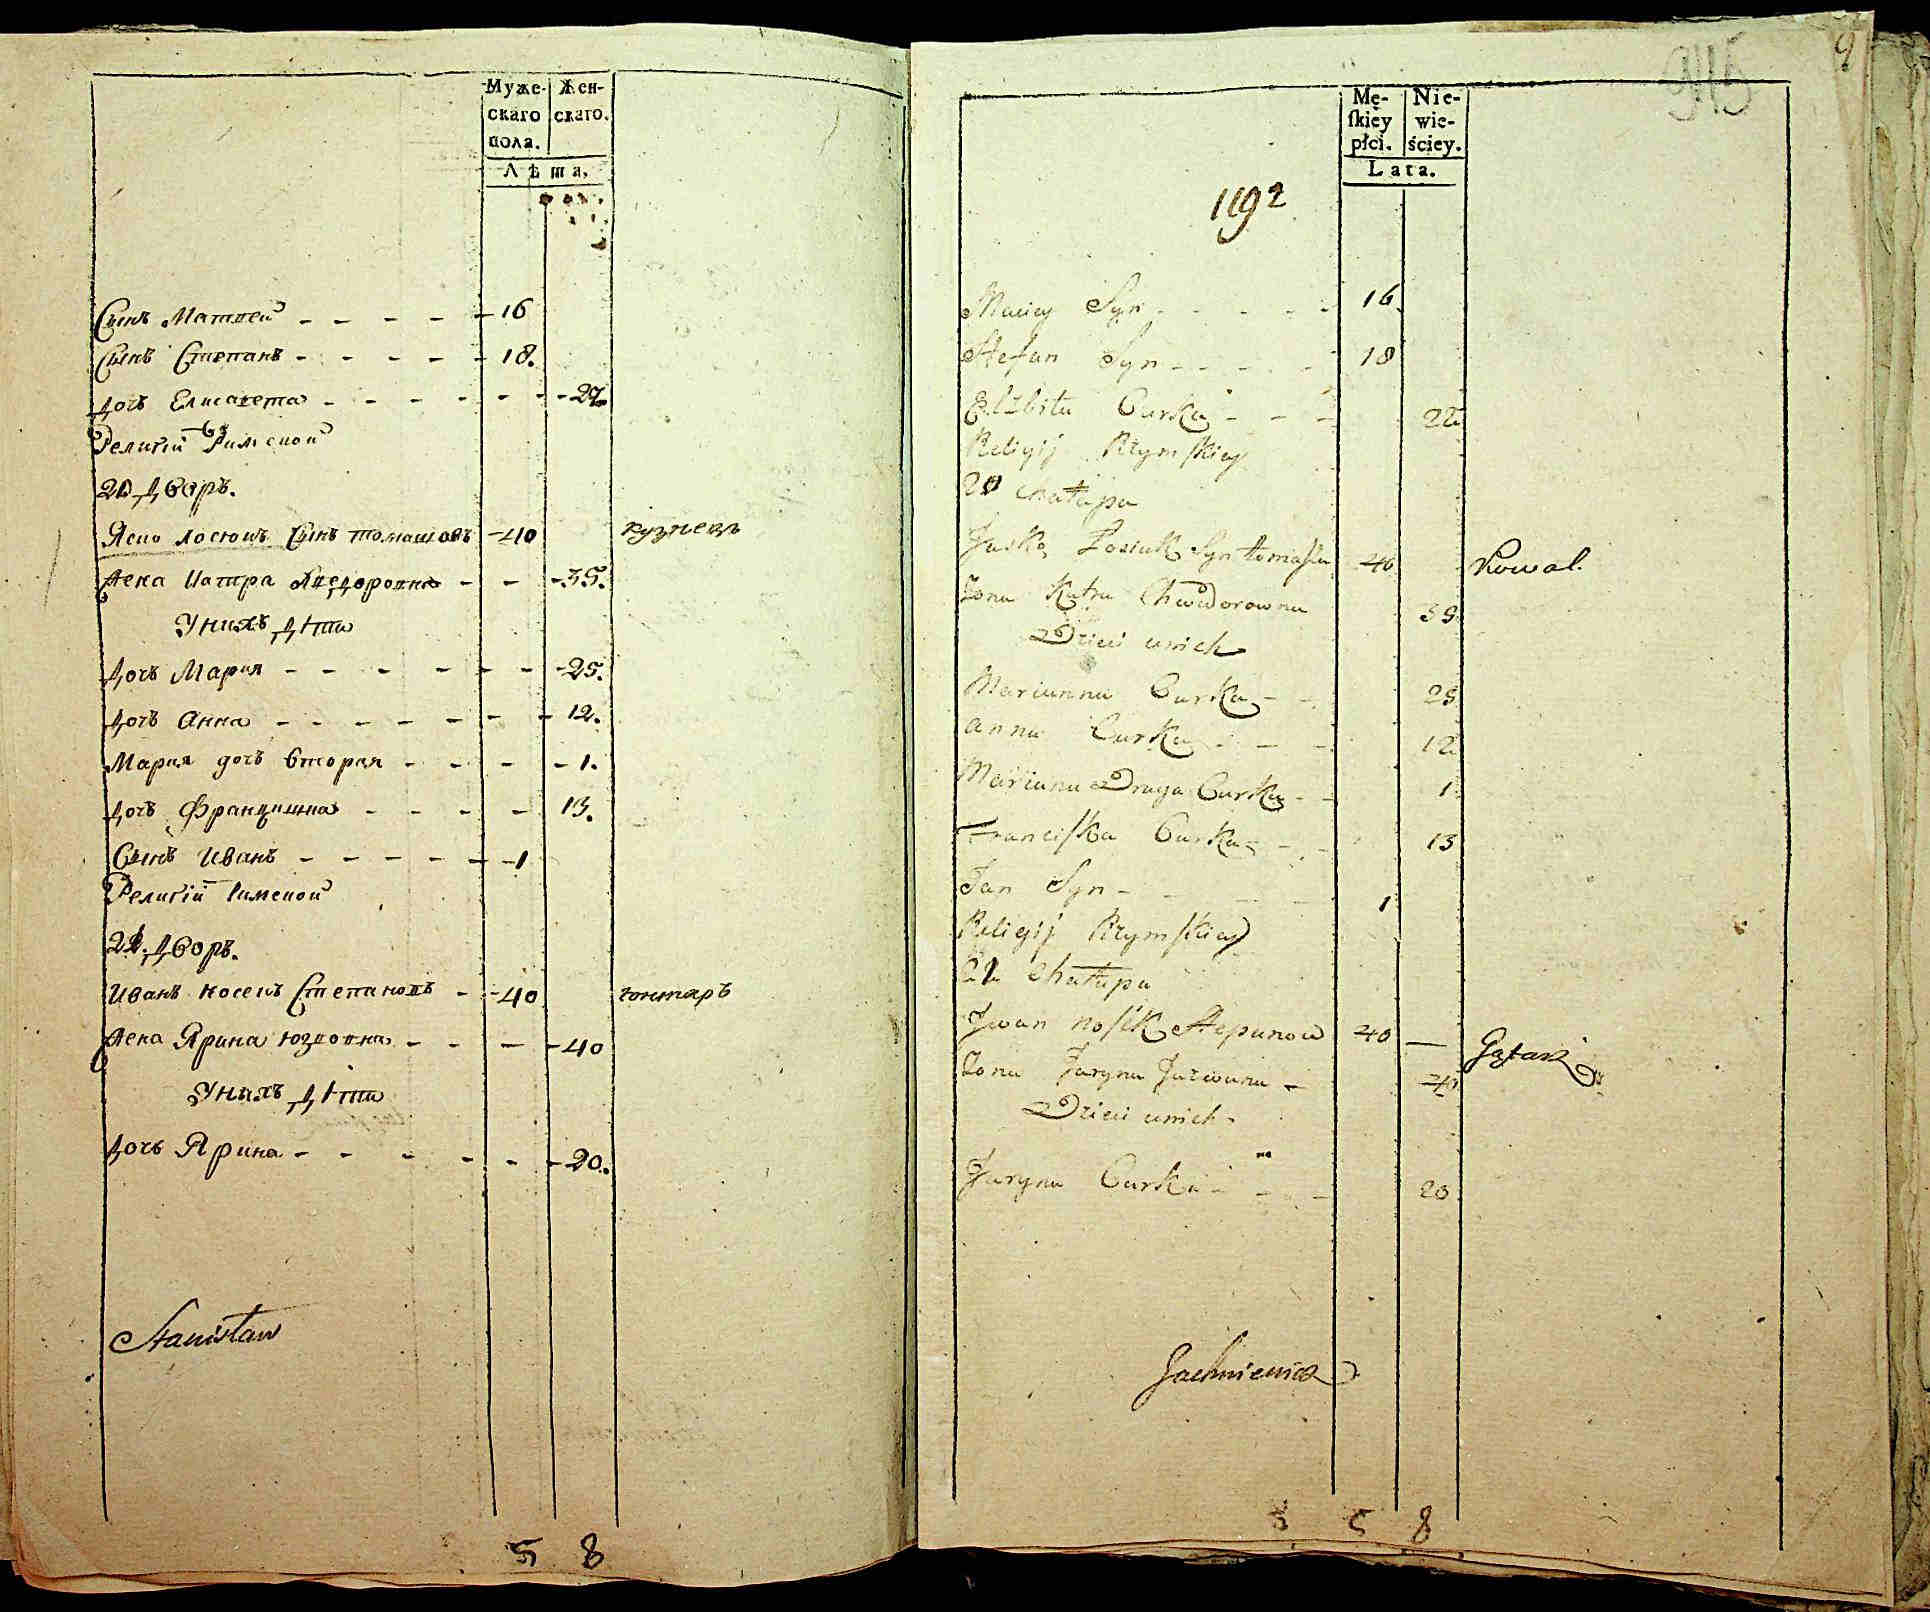 Муже-
скаго
пола.
Жен-
скаго.
Лѣта.
Сынъ Матвеи 16
Сынъ Степанъ 18.
дочь Елисавета 22
Религіи Римской
20 Дворъ.
Яско Лосюкъ Сынъ томашовъ 40 кузнецъ
Жена Катра Хведоровна 35.
Унихъ Дѣти
Дочь Мария 25.
Дочь Анна 12.
Мария дочь вторая 1.
Дочь Францишка 13.
Сынъ Иванъ 1
Религіи Римской
21. Дворъ.
Иванъ Носекъ Степановъ 40 гонтаръ
Жена Ярина Юзвовна 40
Унихъ Дѣти
Дочь Ярина 20.
Stanisław
5 8
945
9
Mę-
skiey
płci.
Nie-
wie-
ściey.
Lata.
1192
Maciey Syn 16
Stefan Syn 18
Elżbita Curka 22
Religij Rzymskiey
20 Chałupa
Jasko Łosiuk Syn tomasza 40 Kowal.
Żona Katra Chwedorowna 35
Dzieci unich
Marianna Curka 25
Anna Curka 12
Marianna Druga Curka 1
Franciszka Curka 13
Jan Syn 1
Religij Rzymskiey
21 Chałupa
Jwan Nosek Stepanow 40
Żona Jaryna 40
Dzieci unich
Jaryna Curka 20
Jachniewicz
5 8